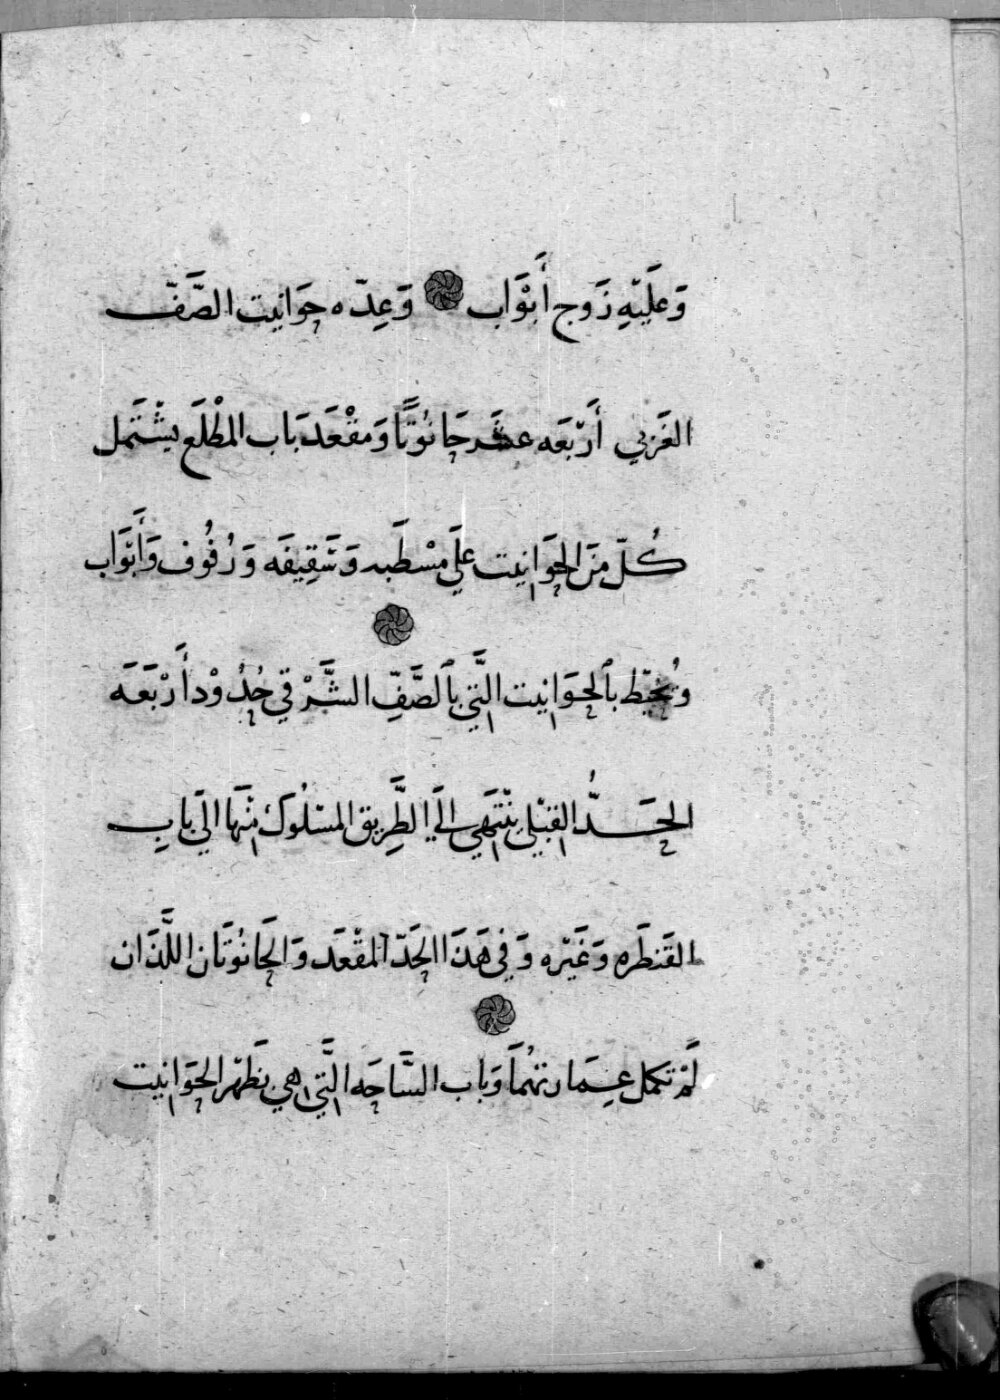 وَعَلَيْهِ زَوج أَبْوَاب وَعِدّه حِوَانِيت الصَّفّ
الغَرْبي أَرْبَعَه عشَر حَانُوتًا وَمَقْعَد بَاب المَطْلَع يَشْتَمل
كُلّ مِنَ الحِوَانِيت عَلَى مسْطَبه وَسَقِيفَه وَرُفُوف وَأَبْوَاب
وَيُحِيْط بالحِوَانِيت الَّتِي بالصَّفِّ الشَّرْقي حُدُوْد أَرْبَعَه
الحَدُّ القبْلي يَنْتَهي الَى الطَّرِيق المسْلُوك مِنْهَا الَى بَابِ
القَنطَره وَغَيْره وَفِي هَذَا الحَدّ المَقْعَد وَالحَانُوتَان اللَّذَان
لَمْ تكمل عِمَارتهُمَا وَبَاب السَّاحَه الَّتِي هي بَظَهْر الحِوَانِيت